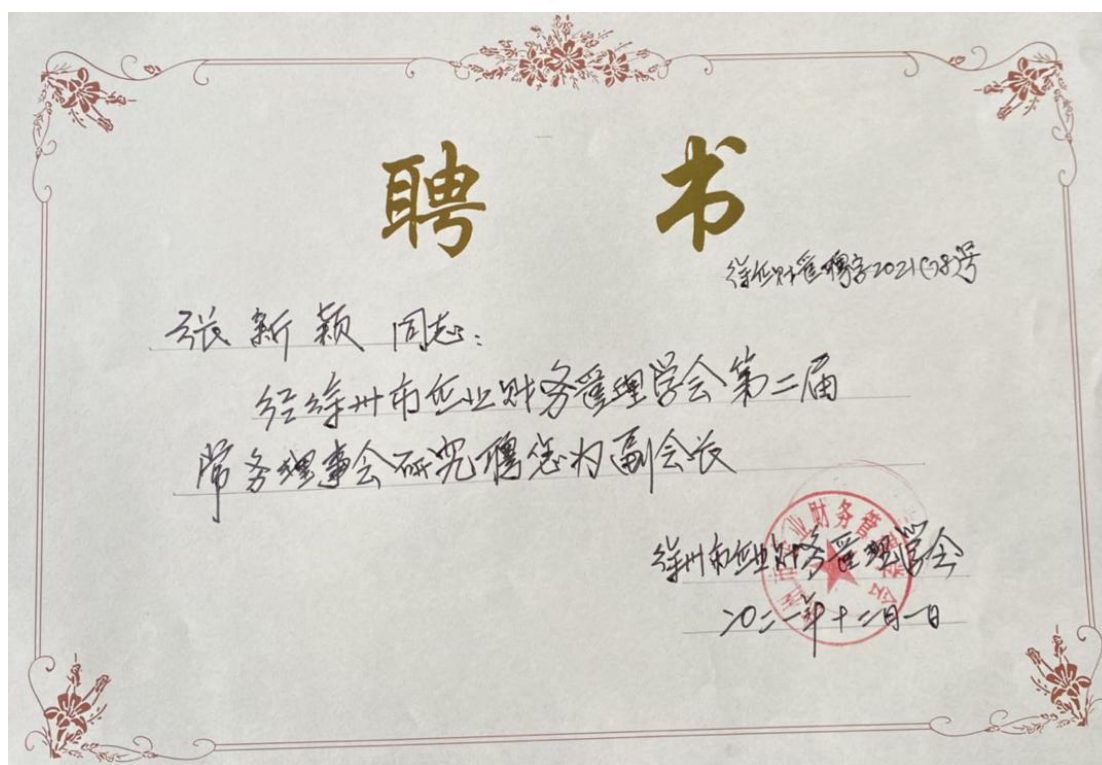 聘书
徐企财管聘字2021(78)号
张新颖同志:
经徐州市企业财务管理学会第二届
常务理事会研究聘您为副会长
徐州市企业财务管理学会
二〇二一年十二月一日